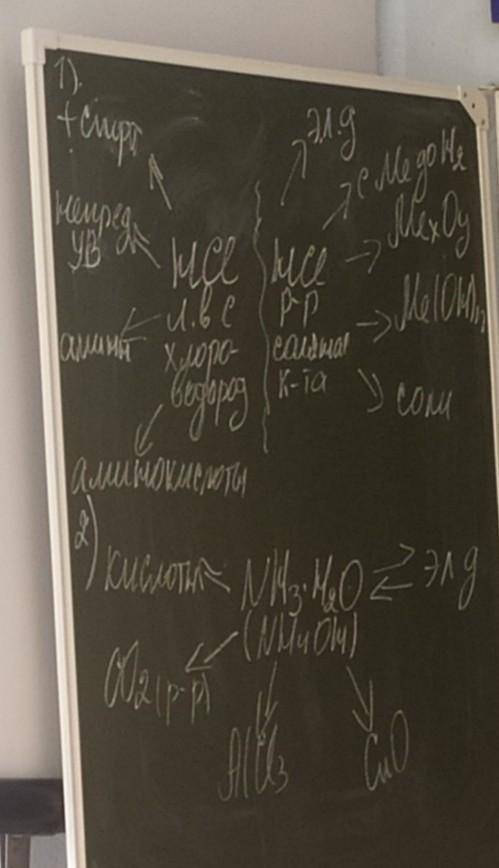 1).
+ спирт
непред.
УВ
амины
HCl
л.в с
хлоро-
водород
аминокислоты
эл.д
с Me до H₂
MexOy
HCl
р-р
соляная
к-та
Me(OH)n
соли
2)
кислоты
NH₃·H₂O
(NH₄OH)
эл д
CO₂ (р-р)
AlCl₃
CuO